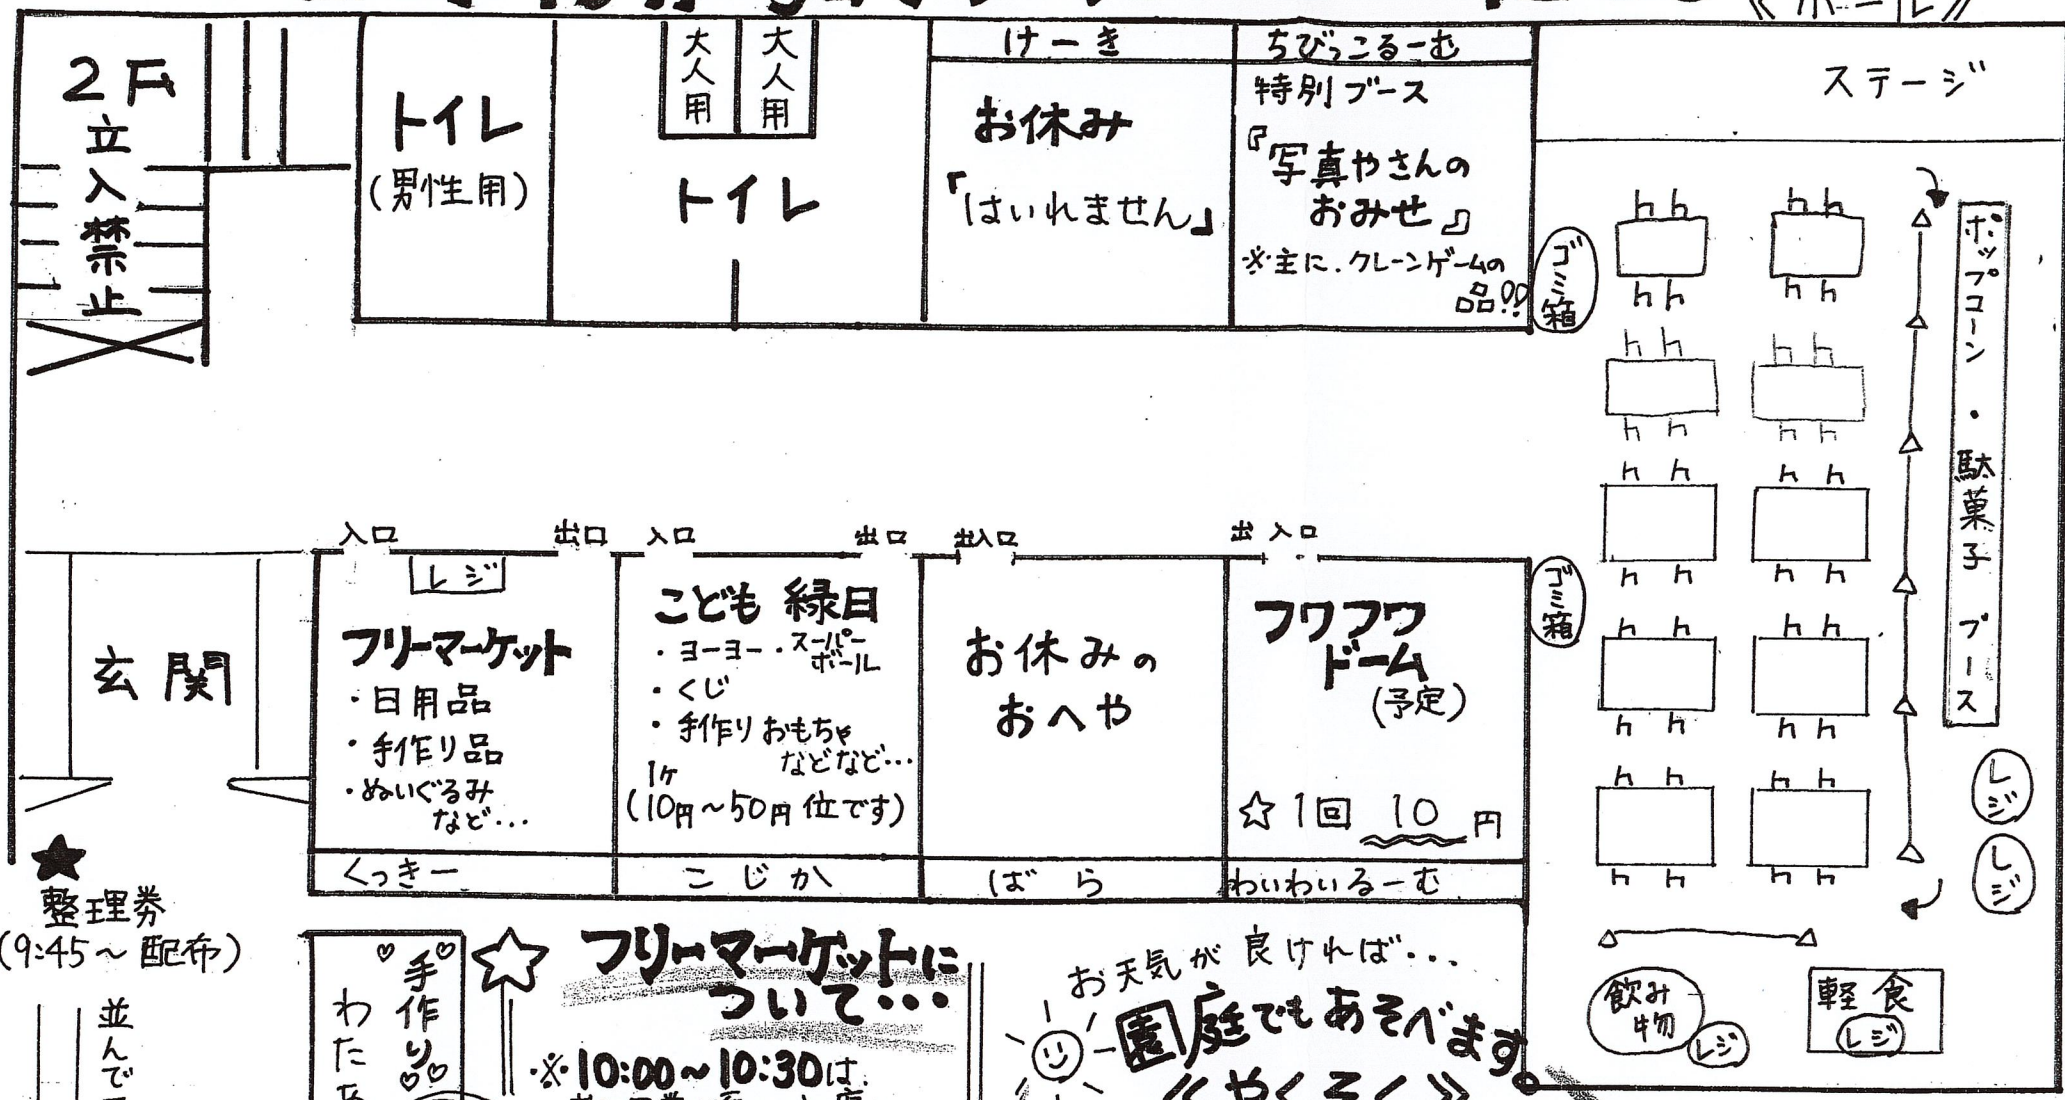 《ホール》
2F
立入禁止
トイレ
(男性用)
大人用
大人用
トイレ
けーき
お休み
『はいれません』
ちびっこるーむ
特別ブース
『写真やさんの
おみせ』
※主に、クレーンゲームの
品!!
ステージ
ゴミ箱
ポップコーン・駄菓子ブース
入口
出口
入口
出口
出入口
出入口
玄関
レジ
フリーマーケット
・日用品
・手作り品
・ぬいぐるみ
など…
くっきー
こども縁日
・ヨーヨー・スーパー
ボール
・くじ
・手作りおもちゃ
などなど…
1ヶ
(10円～50円位です)
こじか
お休みの
おへや
ばら
フワフワ
ドーム
(予定)
☆1回 10円
わいわいるーむ
ゴミ箱
レジ
レジ
飲み物
レジ
軽食
レジ
★
整理券
(9:45～配布)
並んで
♡手作り♡
わた
☆フリーマーケットに
ついて…
※10:00～10:30は、
お天気が良ければ…
園庭でもあそべます。
《やくそく》